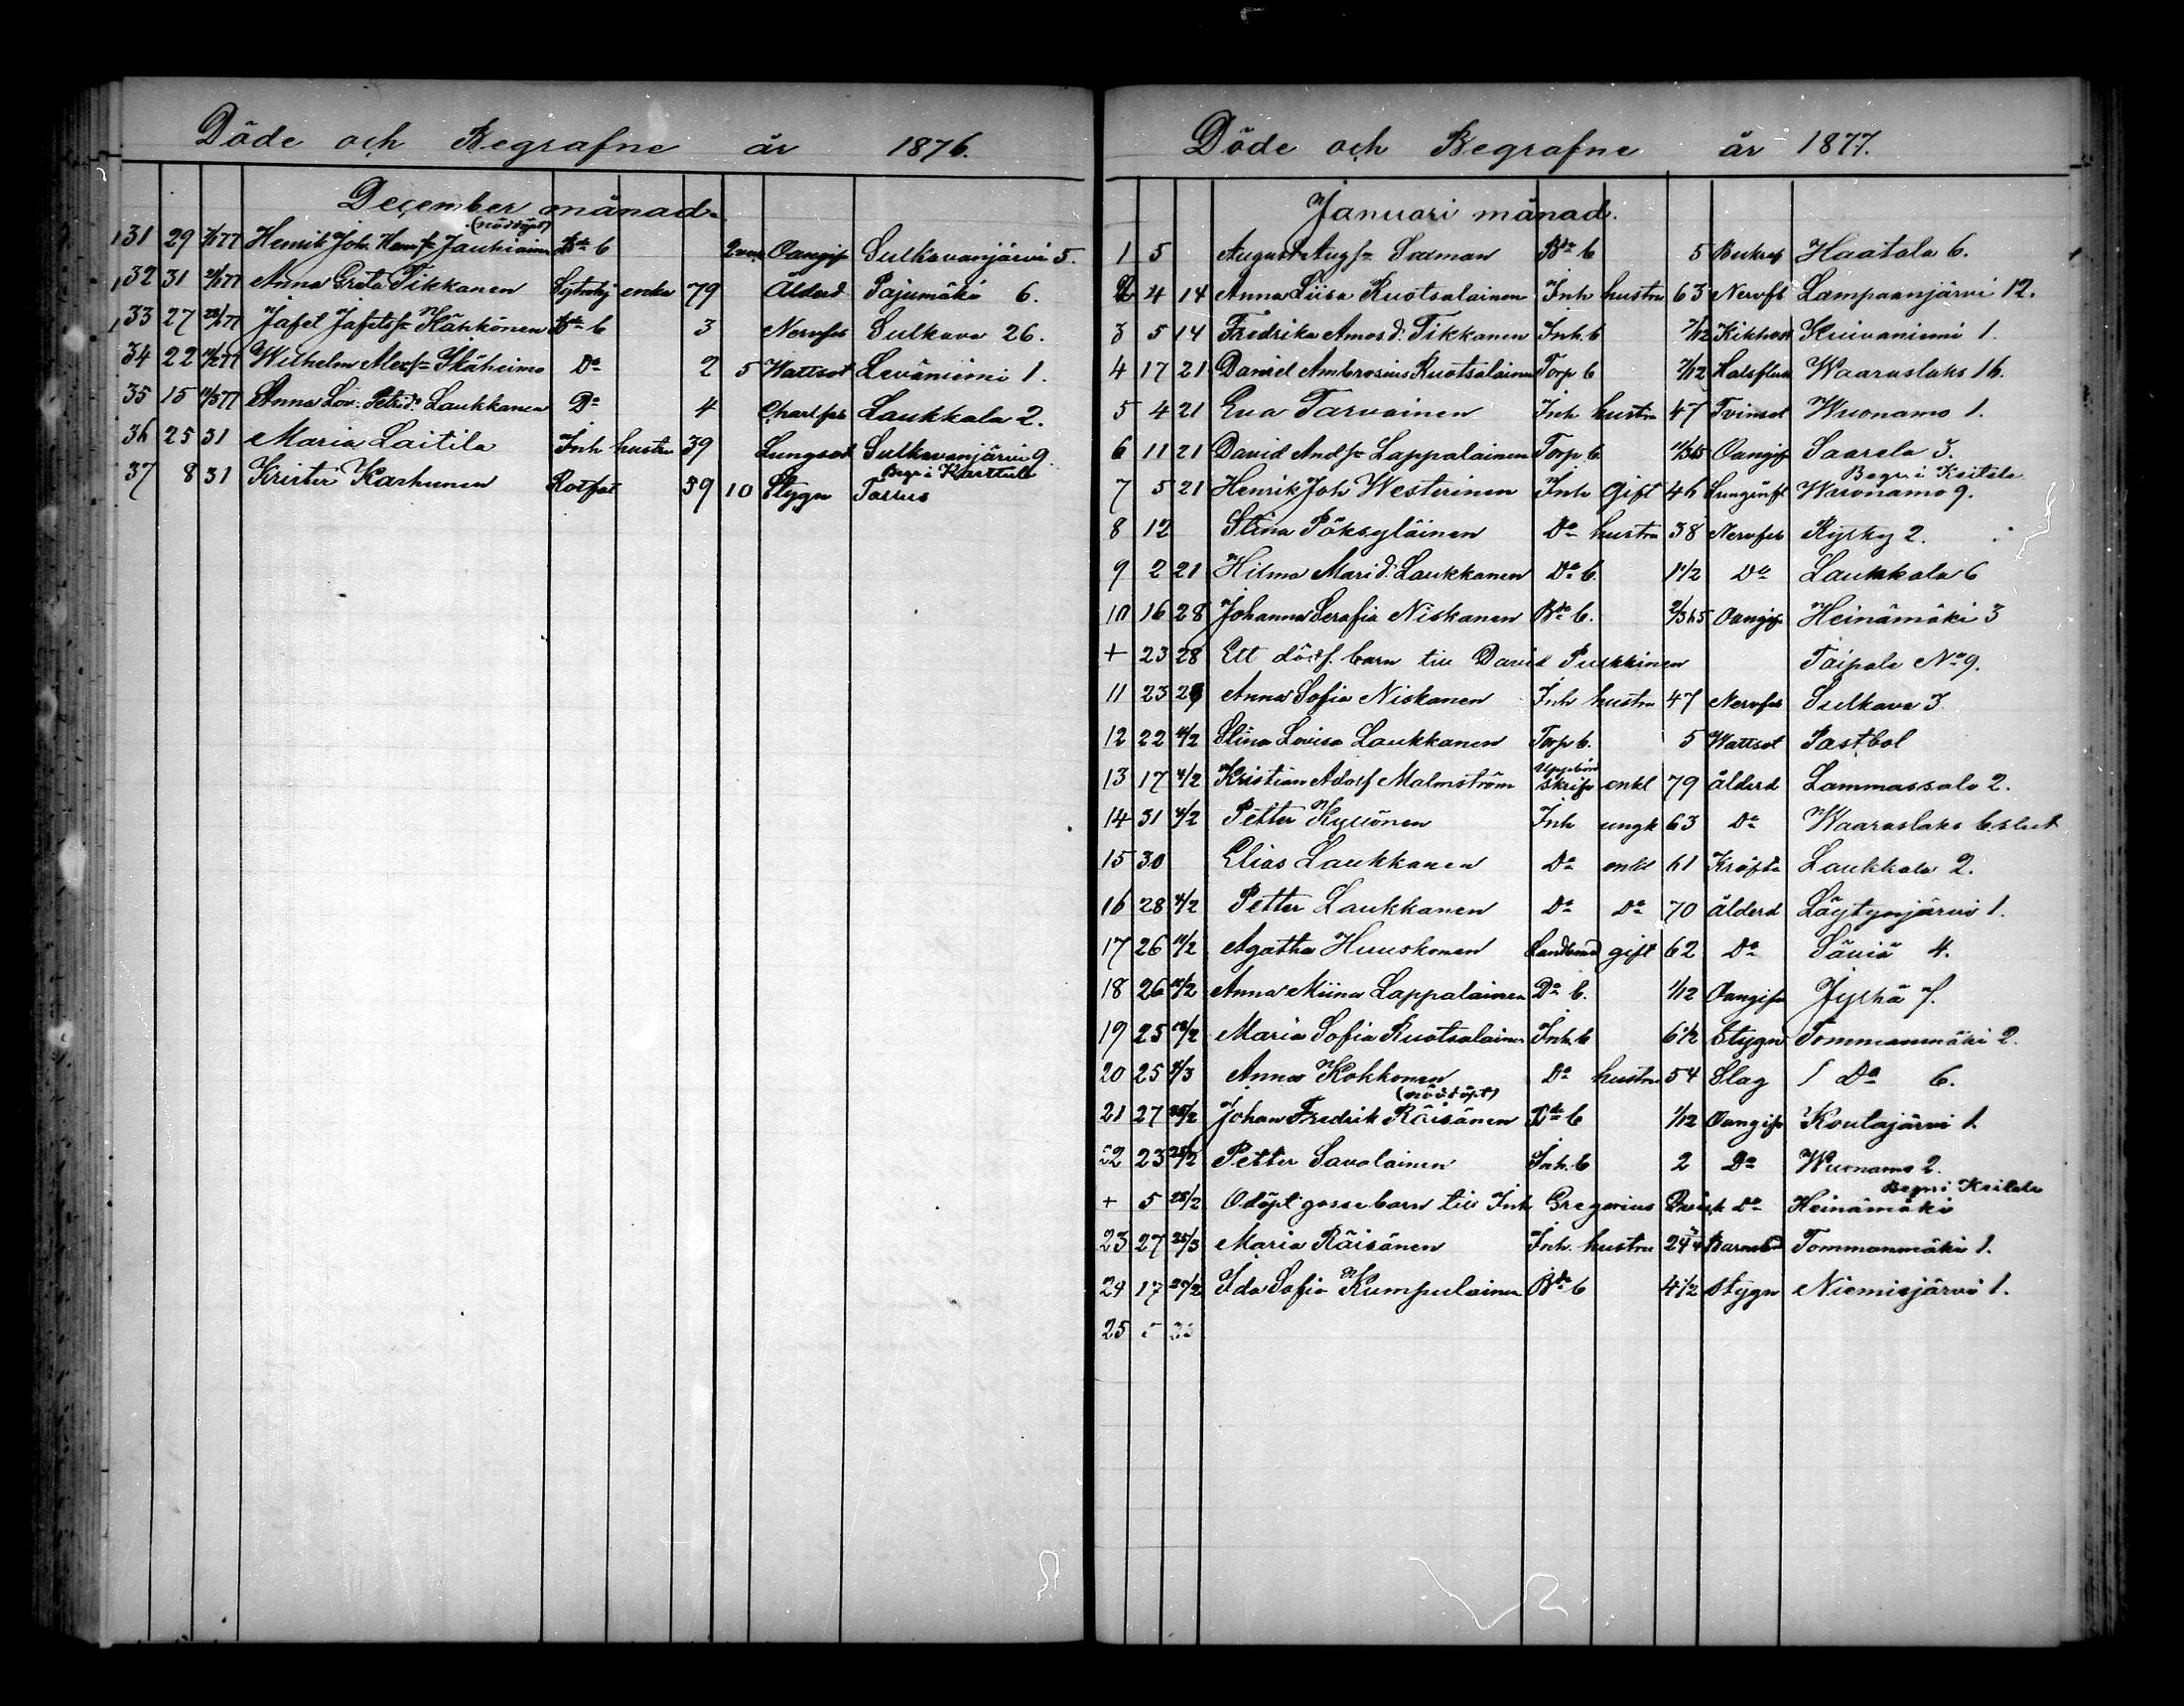 Döde och Begrafne år 1876.
December månad.
(nödöpt)
31 29 7/1 77 Henrik Joh. Henrs Jauhiainen Bde b 2 ve Oangif Sulkavanjärvi 5.
32 31 21/1 77 Anna Greta Tikkanen Sytning enka 79 Ålderd Pajumäki 6.
33 27 28/1 77 Jafet Jafetss Kähkönen Bde b 3 Nervfeb Sulkava 26.
34 22 11/2 77 Wilhelm Alexss Skäheimo Do 2 5 Wattsot Levaniemi 1.
35 15 11/3 77 Anna Lov. Petrid. Laukkanen Do 4 Charlfeb Laukkala 2.
36 25 31 Maria Laitila Inh hustru 39 Lungsot Sulkavanjärvi 9.
Begr i Karttula
37 8 31 Krister Karhunen Rotfat 59 10 Stygn Tallus
Döde och Begrafne år 1877.
Januari månad.
1 5 August Augss Sodman Bde b 5 Haatala 6.
2 4 14 Anna Liisa Ruotsalainen Inh hustru 63 Nervfb Lampaanjärvi 12.
3 5 14 Fredrika Amos.d. Tikkanen Inh. b 7/12 Kikhost Kuivaniemi 1.
4 17 21 David Ambrosius Ruotsalainen Torp b 7/12 Halsfluss Waaraslaks 16.
5 4 21 Eva Tarvainen Inh hustru 47 Tvinsot Wuonamo 1.
6 11 21 David Andss Lappalainen Torp b. 11/365 Oangif Saarela 3.
Begr. i Keitele
7 5 21 Henrik Joh Westerinen Inh Gift 46 Lunginfl Wuonamo 9.
8 12 Stina Pöksyläinen Do hustru 38 Nervfeb Kysky 2.
9 2 21 Hilma Mari d. Laukkanen Do b. 1 1/2 Do Laukkala 6
10 16 28 Johanna Serafia Niskanen Bde b. 2/365 Oangif Heinämäki 3
+ 23 28 Ett dödf. barn till David Pulkkinen Taipale No 9.
11 23 28 Anna Sofia Niskanen Inh hustru 47 Nervfeb Sulkava 3
12 22 4/2 Stina Lovisa Laukkanen Torp b. 5 Wattsot Pastbol
13 17 4/2 Kristian Adolf Malmström Uppbörd skrifv enkl 79 ålderd Lammassalo 2.
14 31 4/2 Petter Kyllönen Inh ungk 63 Do Waaraslaks 6. slut
15 30 Elias Laukkanen Do enkl 61 Kräfta Laukkala 2.
16 28 4/2 Petter Laukkanen Do Do 70 ålderd Löytynjärvi 1.
17 26 11/2 Agatha Huuskonen Landbond gift 62 Do Säviä 4.
18 26 11/2 Anna Miina Lappalainen Do b. 1/12 Oangif Jylhä 7.
19 25 18/2 Maria Sofia Ruotsalainen Inh. b 6 1/2 Stygn Tommanmäki 2.
20 25 4/3 Anna Kokkonen Do hustru 54 Slag Do 6.
(nödöpt)
21 27 25/2 Johan Fredrik Räisänen Bde b 1/12 Oangif Koulajärvi 1.
22 23 25/2 Petter Savolainen Inh. b 2 Do Wuonamo 2.
Begr i Keitele
+ 5 25/2 Odöpt gossebarn till Inh Gregorius Do Heinämäki
23 27 25/3 Maria Räisänen Inh. hustru 24 Barnsbd Tommanmäki 1.
24 17 20/2 Ida Sofia Kumpulainen Bde b 4 1/2 Stygn Niemisjärvi 1.
25